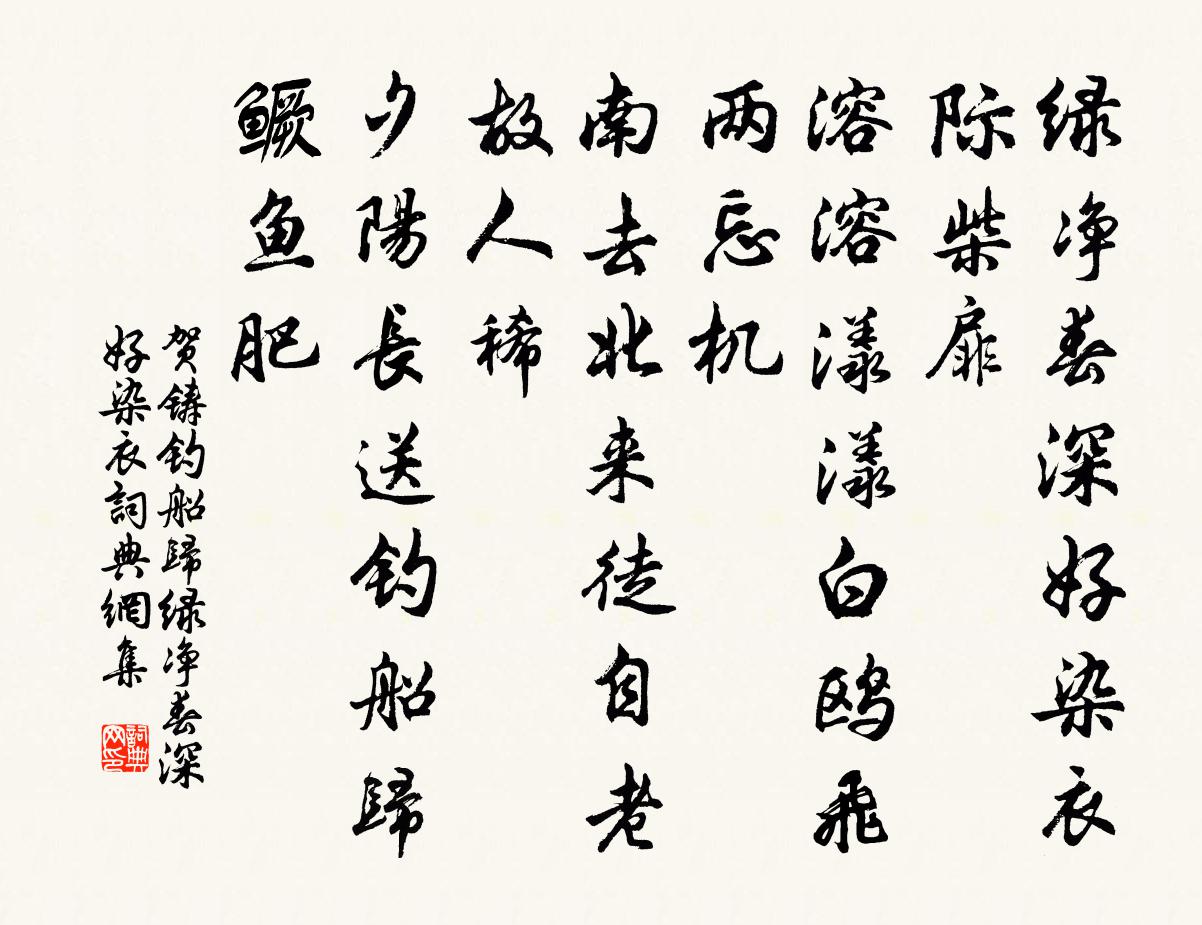 绿净春深好染衣
际柴扉
溶溶漾漾白鸥飞
两忘机
南去北来徒自老
故人稀
夕陽長送钓船歸
鳜鱼肥
贺铸钓船歸绿净春深
好染衣詞典網集
詞典网印